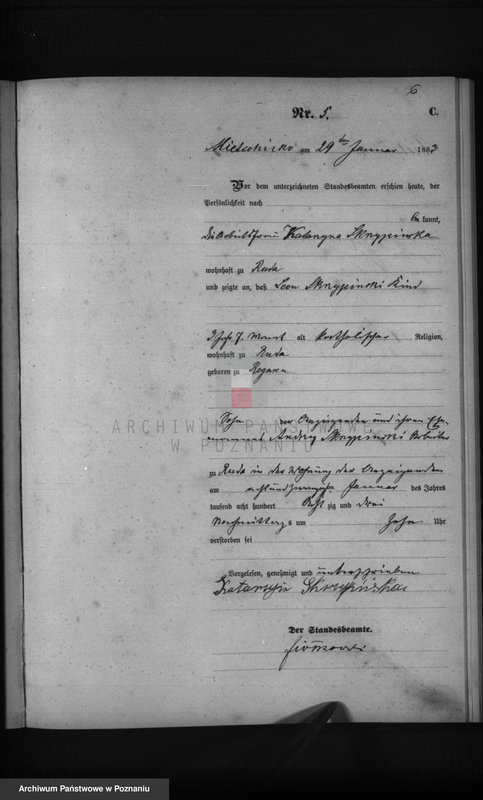 6
Nr. 5. C.
Mietschisko am 29ten Januar 1883
Vor dem unterzeichneten Standesbeamten erschien heute, der
Persönlichkeit nach
bekannt,
die Arbeitsfrau Katarzyna Skrypinska
wohnhaft zu Ruda
und zeigte an, daß Leon Skrypinski Kind
3 Jahr 7. Monat alt katholischer Religion,
wohnhaft zu Ruda
geboren zu
Sohn der Anzeigenden und ihres Ehe-
mannes Andrzy Skrypinski Arbeiter
zu Ruda in der Wohnung der Anzeigenden
am achtundzwanzigsten Januar des Jahres
tausend acht hundert Achtzig und drei
Nachmittags um Zehn Uhr
verstorben sei
Vorgelesen, genehmigt und unterschrieben
Katarzyna Skrzypińska
Der Standesbeamte.
ARCHIWUM PAŃSTWOWE
W POZNANIU
Archiwum Państwowe w Poznaniu